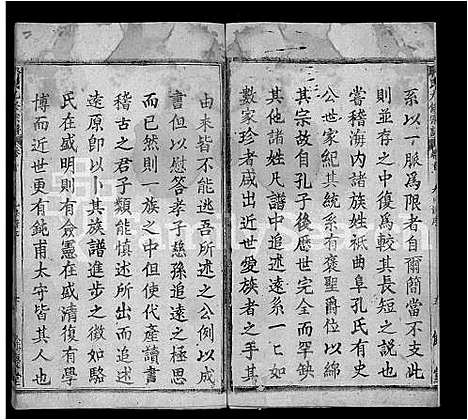 系以一脈為限者自爾簡當不支此
則並存之中復為較其長短之說也
嘗稽海內諸族姓秖曲阜孔氏有史
公世家紀其統系有褒聖爵位以綿
其宗故自孔子後俱世完全而罕缺
其他諸姓凡譜中追述遠系一一如
數家珍者咸出近世愛族者之手其
由來皆不能逃吾所述之公例以成
書但以慰答孝子慈孫追遠之極思
而已然則一族之中但使代產讀書
稽古之君子類能慎述所出而追述
遠原即以卜其族譜進步之徵如駱
氏在盛明則有簽憲在盛清復有學
博而近世更有鈍甫太守皆其人也
FamilySearch